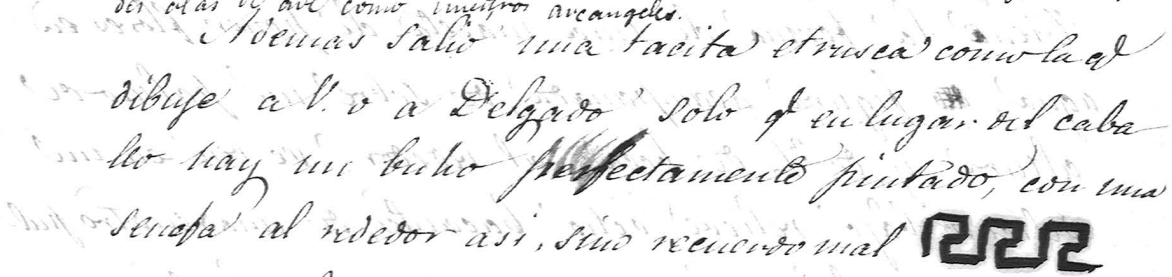 des alas de ave como nuestros arcangeles.
Ademas salio una tacita etrusca como la q
dibuje a V. o a Delgado solo q en lugar del caba
llo hay un buho perfectamente pintado, con una
senefa al rededor asi, sino recuerdo mal